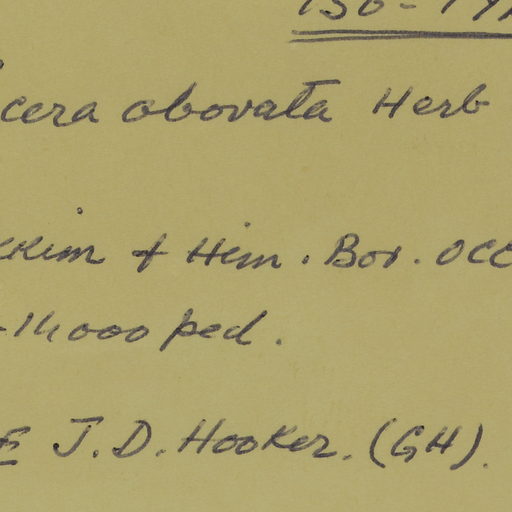 ISO-TY
cera obovata Herb
kkim & Him. Bor. occ
-14000 ped.
E J.D. Hooker. (GH).